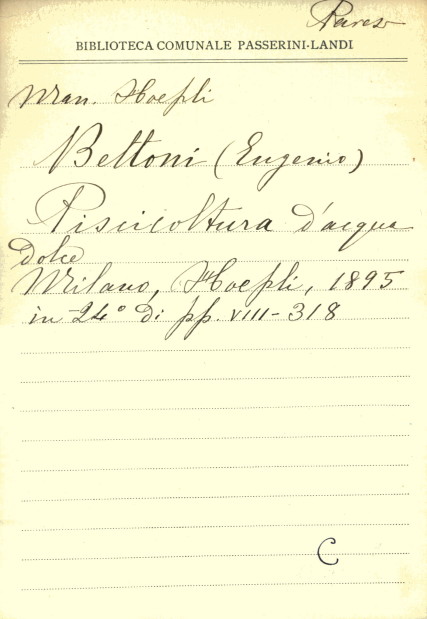 BIBLIOTECA COMUNALE PASSERINI-LANDI
Man. Hoepli
Bettoni (Eugenio)
Piscicoltura d'acqua
Dolce
Milano, Hoepli, 1895
in 24° di pp. VIII-318
C